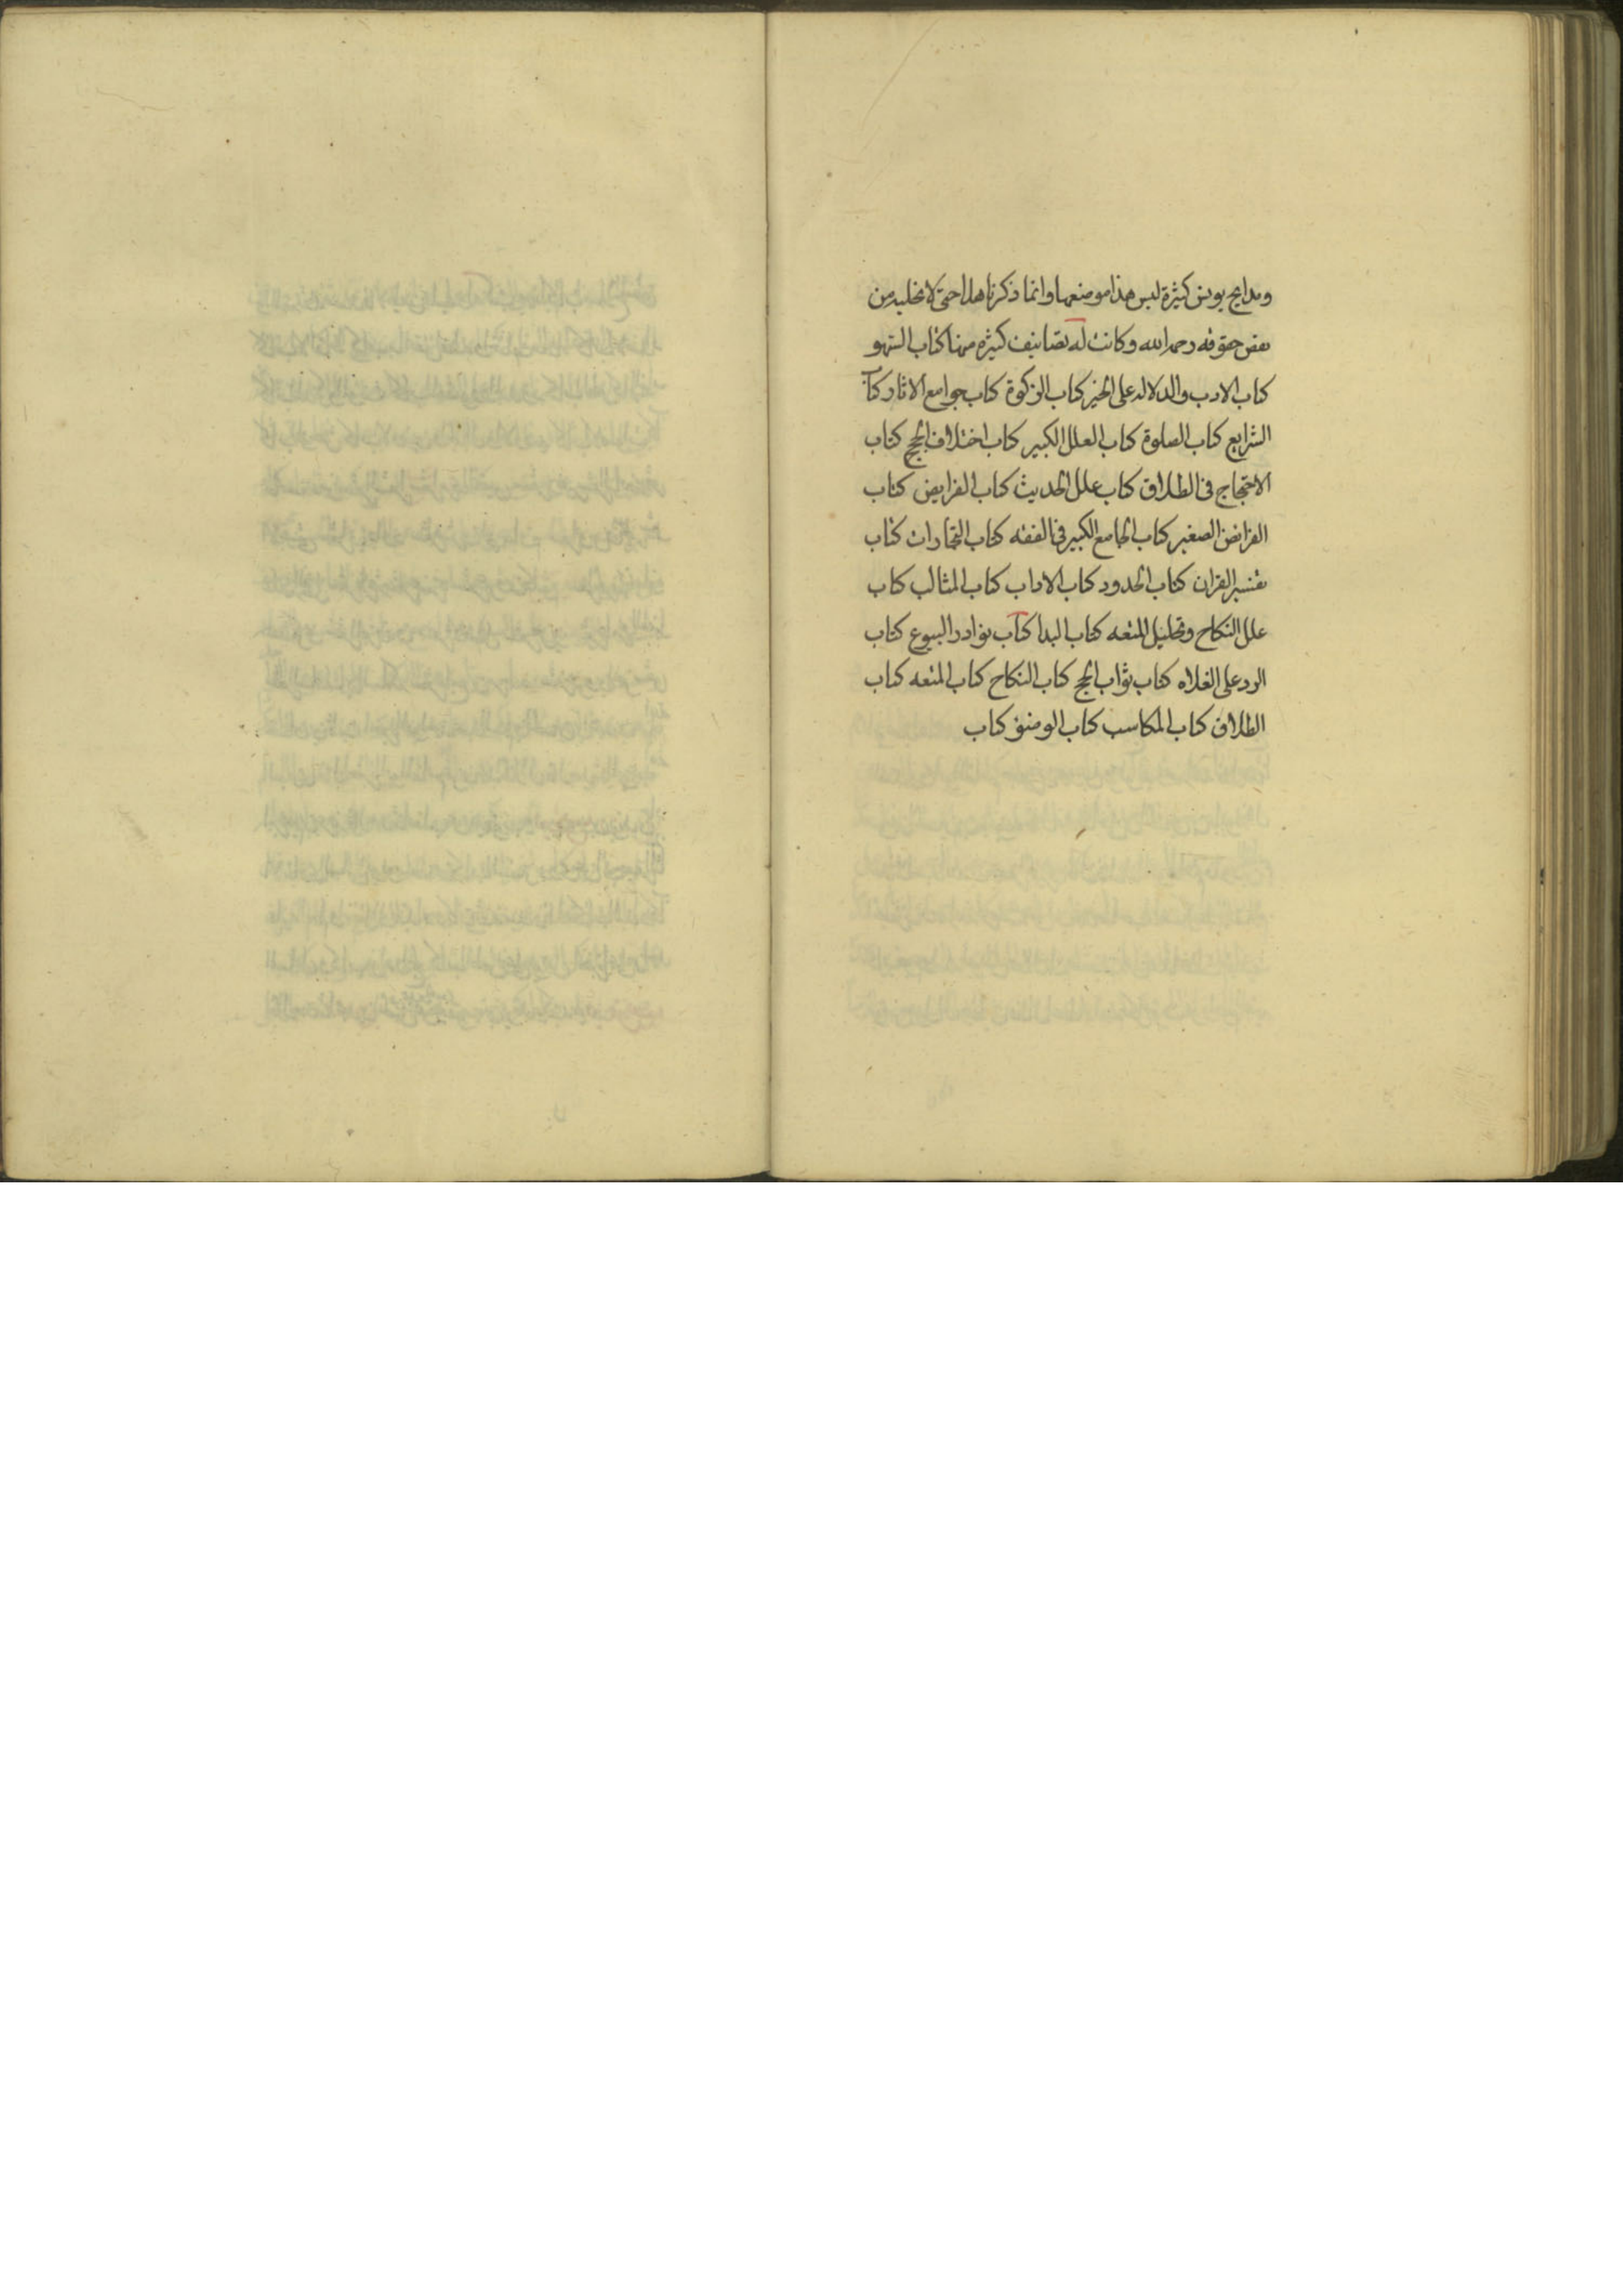 ومدايح يونس كثيرة ليس هذا موضعها وانما ذكرنا هذا حتى لا نخليه من
بعض حقوقه رحمه الله وكانت له تصانيف كثيره منها كتاب السهو
كتاب الادب والدلاله على الخير كتاب الزكوة كتاب جوامع الاثار كتاب
الشرايع كتاب الصلوة كتاب العلل الكبير كتاب اختلاف الحج كتاب
الاحتجاج فى الطلاق كتاب علل الحديث كتاب الفرايض كتاب
الفرايض الصغير كتاب الجامع الكبير فى الفقه كتاب التجارات كتاب
تفسير القران كتاب الحدود كتاب الاداب كتاب المثالب كتاب
علل النكاح وتحليل المتعه كتاب البدا كتاب نوادر البيوع كتاب
الرد على الغلاه كتاب ثواب الحج كتاب النكاح كتاب المتعه كتاب
الطلاق كتاب المكاسب كتاب الوضوء كتاب